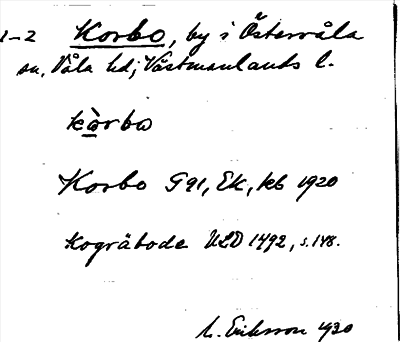 1-2 Korbo, by i Östervåla
sn, Våla hd; Västmanlands l.
kòrbo
Korbo G91, EK, kb 1920
Kogräbode ULD 1492, s. 148.
M. Eriksson 1930